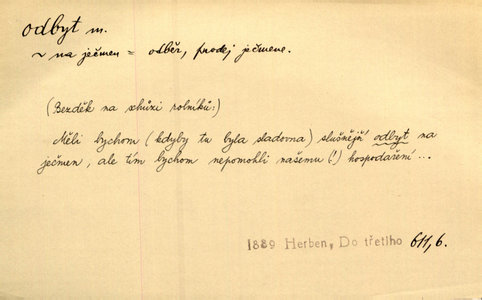 odbyt m.
~ na ječmen = odběr, prodej ječmene.
(Bezděk na schůzi rolníků:)
Měli bychom (kdyby tu byla sladovna) slušnější odbyt na
ječmen, ale tím bychom nepomohli našemu (!) hospodaření ...
1889 Herben, Do třetího 611,6.